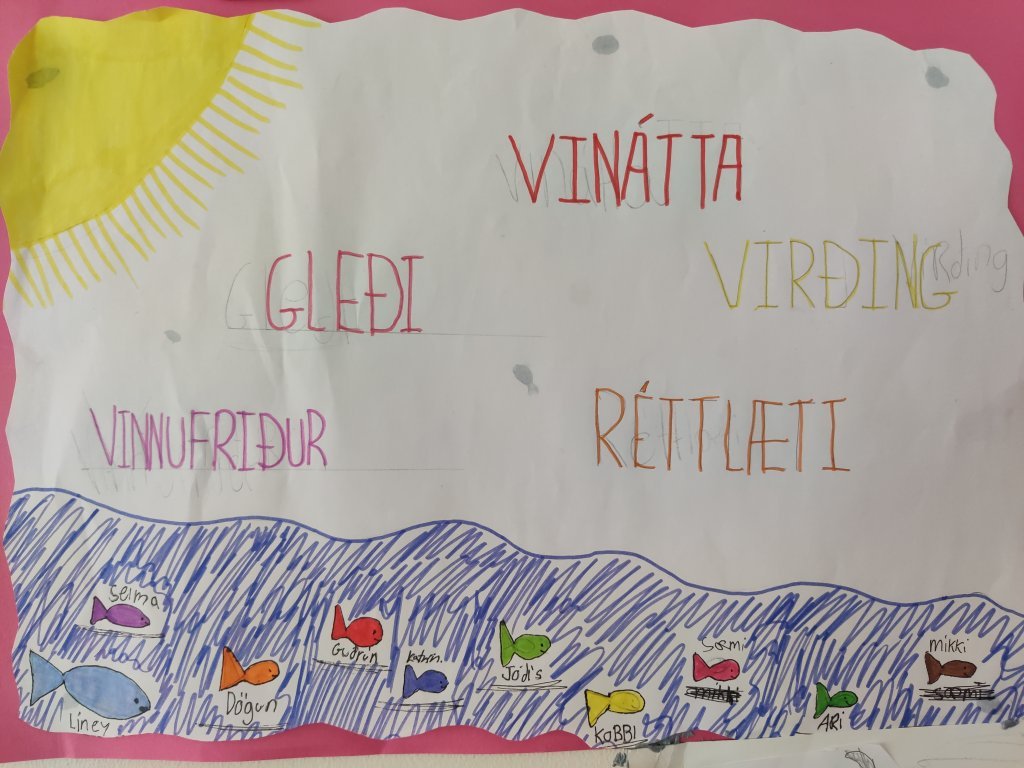 VINÁTTA
VIRÐING
GLEÐI
RÉTTLÆTI
VINNUFRIÐUR
Selma
Líney
Dögun
Guðrun
Katrín.
Jódís
KaBBI
Sæmi
ARi
mikki